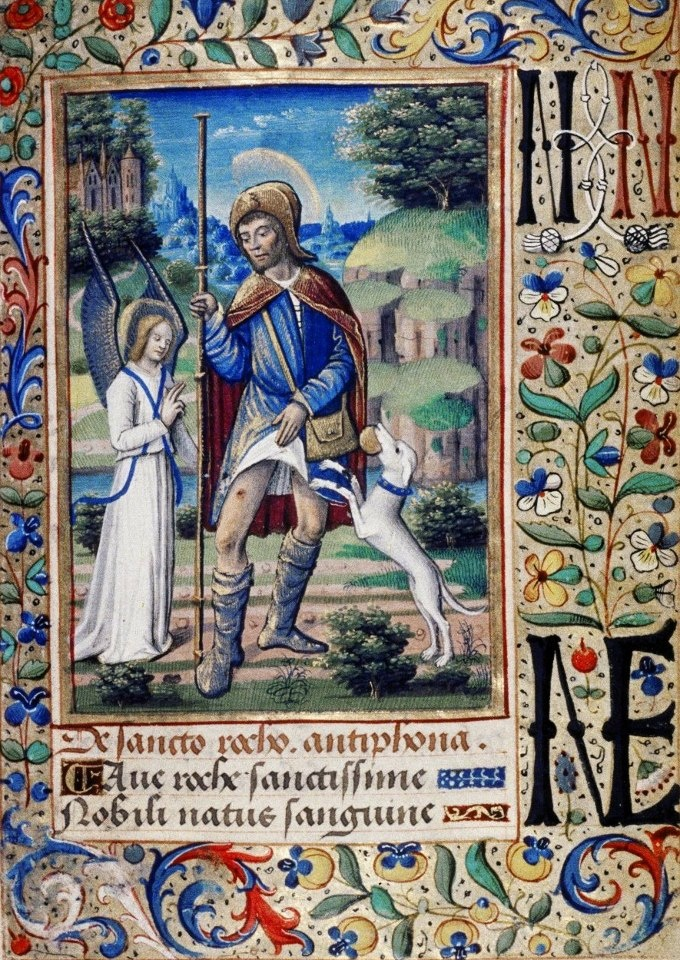 N N
De sancto rocho. antiphona.
Aue roche sanctissime
Nobili natus sanguine
NE